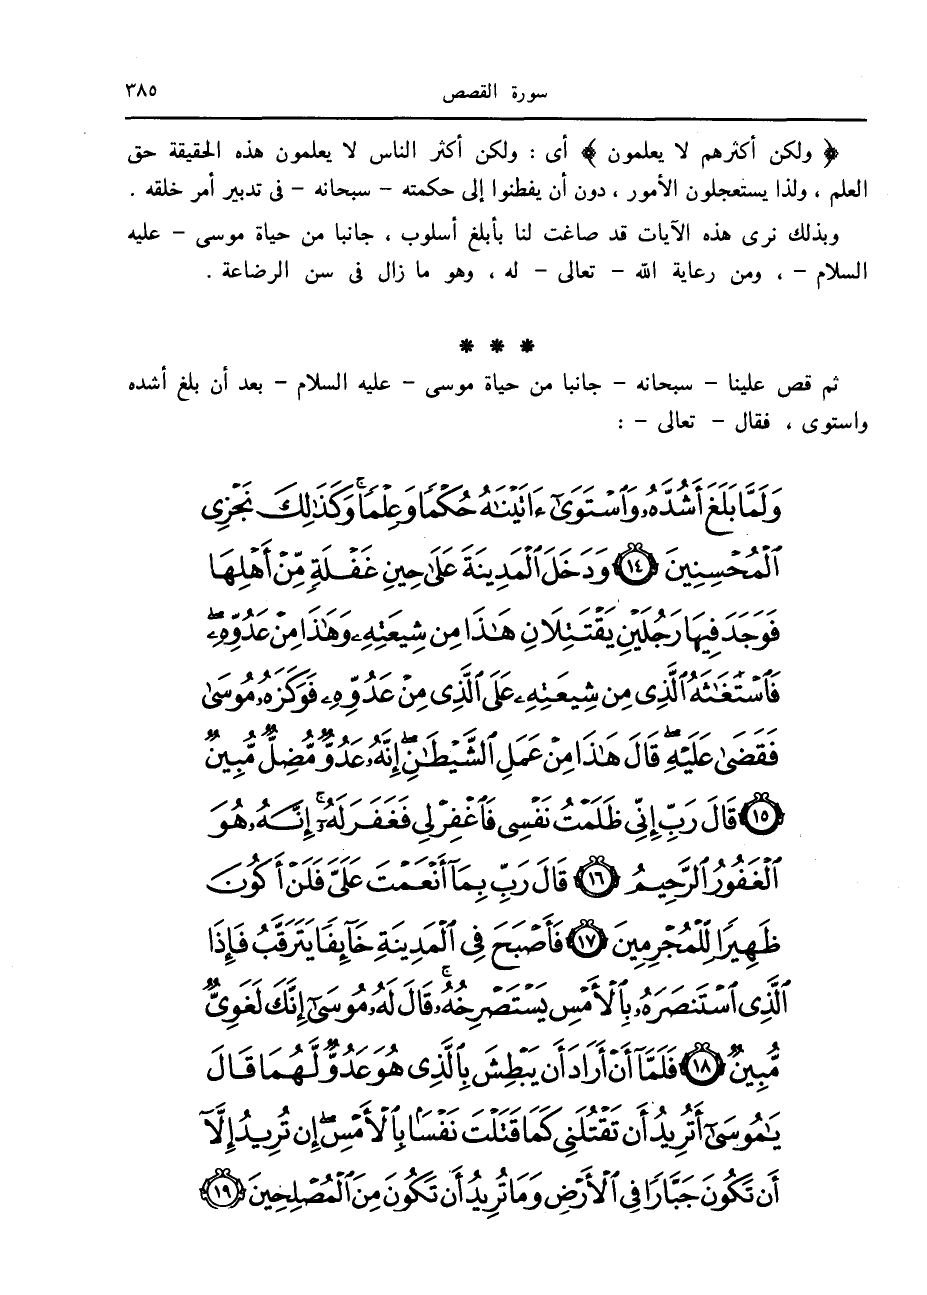 سورة القصص ٣٨٥
﴿ ولكن أكثرهم لا يعلمون ﴾ أى : ولكن أكثر الناس لا يعلمون هذه الحقيقة حق
العلم ، ولذا يستعجلون الأمور ، دون أن يفطنوا إلى حكمته – سبحانه – فى تدبير أمر خلقه .
وبذلك نرى هذه الآيات قد صاغت لنا بأبلغ أسلوب ، جانبا من حياة موسى – عليه
السلام – ، ومن رعاية الله – تعالى – له ، وهو ما زال فى سن الرضاعة .
* * *
ثم قص علينا – سبحانه – جانبا من حياة موسى – عليه السلام – بعد أن بلغ أشده
واستوى ، فقال – تعالى – :
وَلَمَّا بَلَغَ أَشُدَّهُۥ وَٱسْتَوَىٰٓ ءَاتَيْنَٰهُ حُكْمًا وَعِلْمًا ۚ وَكَذَٰلِكَ نَجْزِى
ٱلْمُحْسِنِينَ ﴿١٤﴾ وَدَخَلَ ٱلْمَدِينَةَ عَلَىٰ حِينِ غَفْلَةٍ مِّنْ أَهْلِهَا
فَوَجَدَ فِيهَا رَجُلَيْنِ يَقْتَتِلَانِ هَٰذَا مِن شِيعَتِهِۦ وَهَٰذَا مِنْ عَدُوِّهِۦ ۖ
فَٱسْتَغَٰثَهُ ٱلَّذِى مِن شِيعَتِهِۦ عَلَى ٱلَّذِى مِنْ عَدُوِّهِۦ فَوَكَزَهُۥ مُوسَىٰ
فَقَضَىٰ عَلَيْهِ ۖ قَالَ هَٰذَا مِنْ عَمَلِ ٱلشَّيْطَٰنِ ۖ إِنَّهُۥ عَدُوٌّ مُّضِلٌّ مُّبِينٌ
﴿١٥﴾ قَالَ رَبِّ إِنِّى ظَلَمْتُ نَفْسِى فَٱغْفِرْ لِى فَغَفَرَ لَهُۥٓ ۚ إِنَّهُۥ هُوَ
ٱلْغَفُورُ ٱلرَّحِيمُ ﴿١٦﴾ قَالَ رَبِّ بِمَآ أَنْعَمْتَ عَلَىَّ فَلَنْ أَكُونَ
ظَهِيرًا لِّلْمُجْرِمِينَ ﴿١٧﴾ فَأَصْبَحَ فِى ٱلْمَدِينَةِ خَآئِفًا يَتَرَقَّبُ فَإِذَا
ٱلَّذِى ٱسْتَنصَرَهُۥ بِٱلْأَمْسِ يَسْتَصْرِخُهُۥ ۚ قَالَ لَهُۥ مُوسَىٰٓ إِنَّكَ لَغَوِىٌّ
مُّبِينٌ ﴿١٨﴾ فَلَمَّآ أَنْ أَرَادَ أَن يَبْطِشَ بِٱلَّذِى هُوَ عَدُوٌّ لَّهُمَا قَالَ
يَٰمُوسَىٰٓ أَتُرِيدُ أَن تَقْتُلَنِى كَمَا قَتَلْتَ نَفْسًۢا بِٱلْأَمْسِ ۖ إِن تُرِيدُ إِلَّآ
أَن تَكُونَ جَبَّارًا فِى ٱلْأَرْضِ وَمَا تُرِيدُ أَن تَكُونَ مِنَ ٱلْمُصْلِحِينَ ﴿١٩﴾